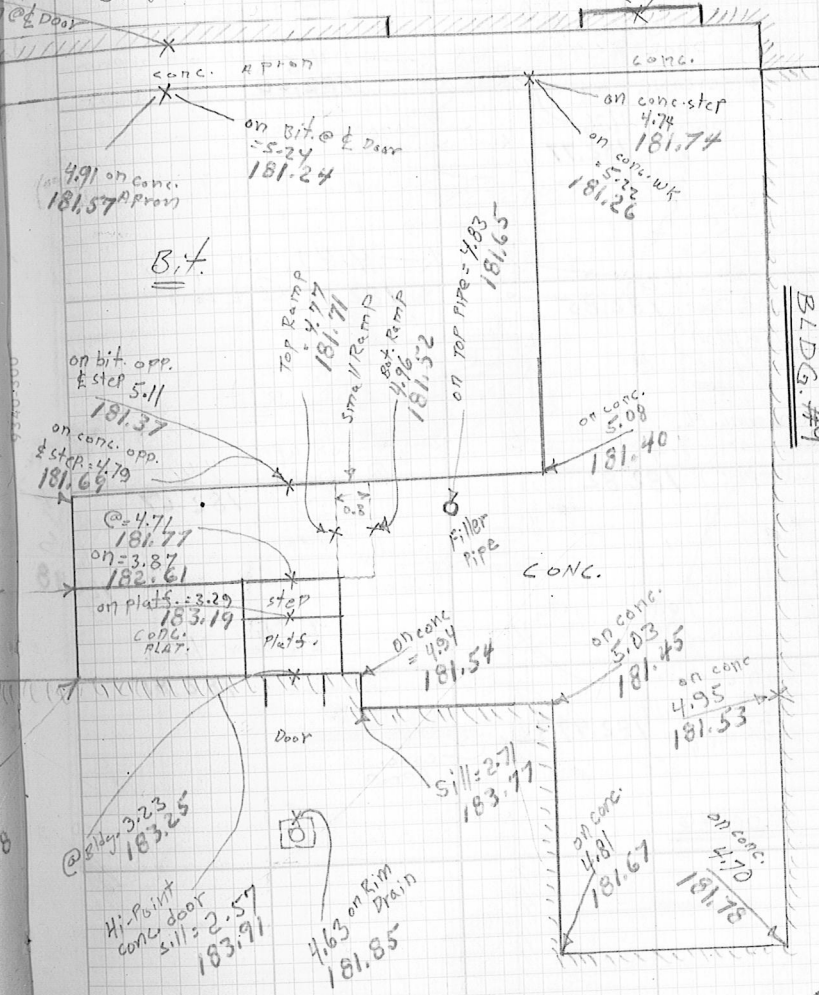 @ ₵ Door
conc. Apron
conc.
on conc. step
4.74
181.74
on conc. WK
= 5.22
181.26
on Bit. @ ₵ Door
= 5.24
181.24
4.91 on conc.
181.57 Apron
Bit.
BLDG. #4
Top Ramp
= 4.77
181.71
Small Ramp
Bot. Ramp
4.96
181.52
on TOP PIPE = 4.83
181.65
on bit. opp.
₵ step
5.11
181.37
on conc. opp.
₵ step = 4.79
181.69
on conc.
5.08
181.40
@ = 4.71
181.77
on = 3.87
182.61
on platf. = 3.29
183.19
CONC.
PLAT.
step
Platf.
Filler
Pipe
CONC.
on conc
= 4.94
181.54
on conc.
5.03
181.45
on conc
4.95
181.53
Door
Sill = 2.71
183.77
@ Bldg. 3.23
183.25
Hi-Point
conc. door
sill = 2.57
183.91
4.63 on Rim
Drain
181.85
on conc.
4.81
181.67
on conc.
4.70
181.78
8